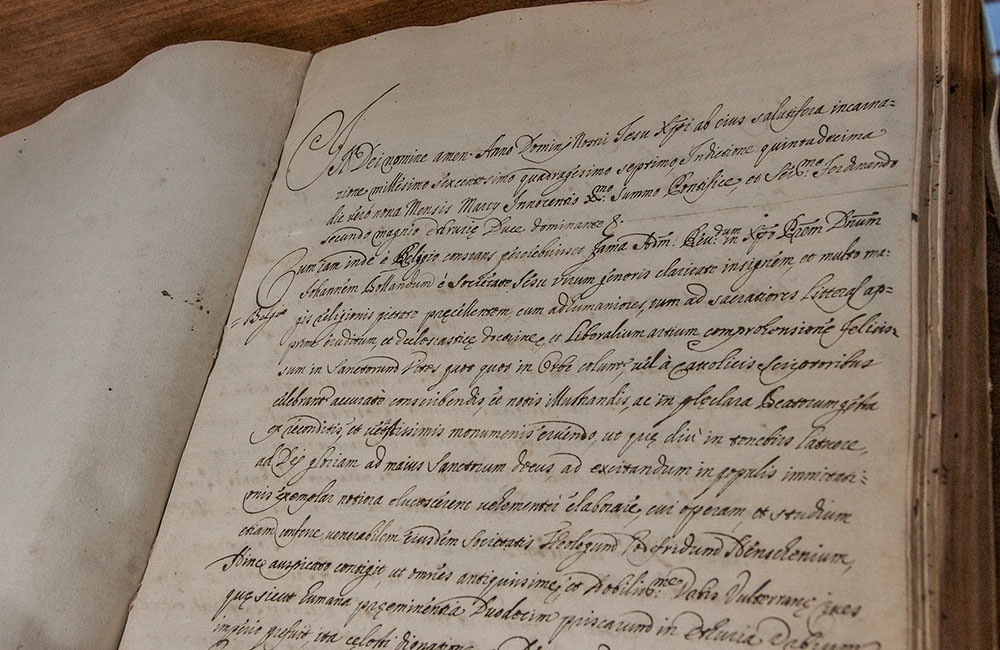 In Dei nomine amen. Anno Domini Nostri Iesu Xpi ab eius salutifera incarna=
tione millesimo sexcentesimo quadragesimo septimo Indictione quinta decima
die vero nona Mensis Marty Innocentio X.mo Summo Pontifice, et Ser.mo Ferdinando
secundo magno etrurię Duce dominante &.
Cum iam inde è Belgio constans percrebuisset fama Adm: Reu.dum in Xpo Prem Dnum
Iohannem Bollandum è Societate Iesu virum generis claritate insignem, et multo ma:
= Belgio
gis religionis pietate pręcellentem cum ad humaniores, tum ad sacratiores litteras ap=
prime eruditum, et ecclesiasticę doctrine, et liberalium artium comprehensione felicis
sum in Sanctorund Vitas quot quot in Orbe colunt, vel à Cattolicis Scriptoribus
celebrant accurate conscribendis, et notis illustrandis, ac in pręclara Beatorum gesta
ex reconditis, et vetustissimis monumenis eruendo, ut quę diu in tenebris latuere,
ad Dei gloriam ad maius Sanctorum decus ad excitandum in populis immitati=
onis exemplar notina elucescerent vehementer elaborare, cui operam, et studium
etiam conferre venerabilem eiusdem Societatis Theologund Gotefridund Henschenium,
Hinc auspicato contigit ut omnes antiquissimę, et Nobilis.mae Vrbis Vulterranę
quę sicut humana pręeminentia Duodecim priscarund in etruria Vrbium
imperio prefuit, ita celesti dignatione